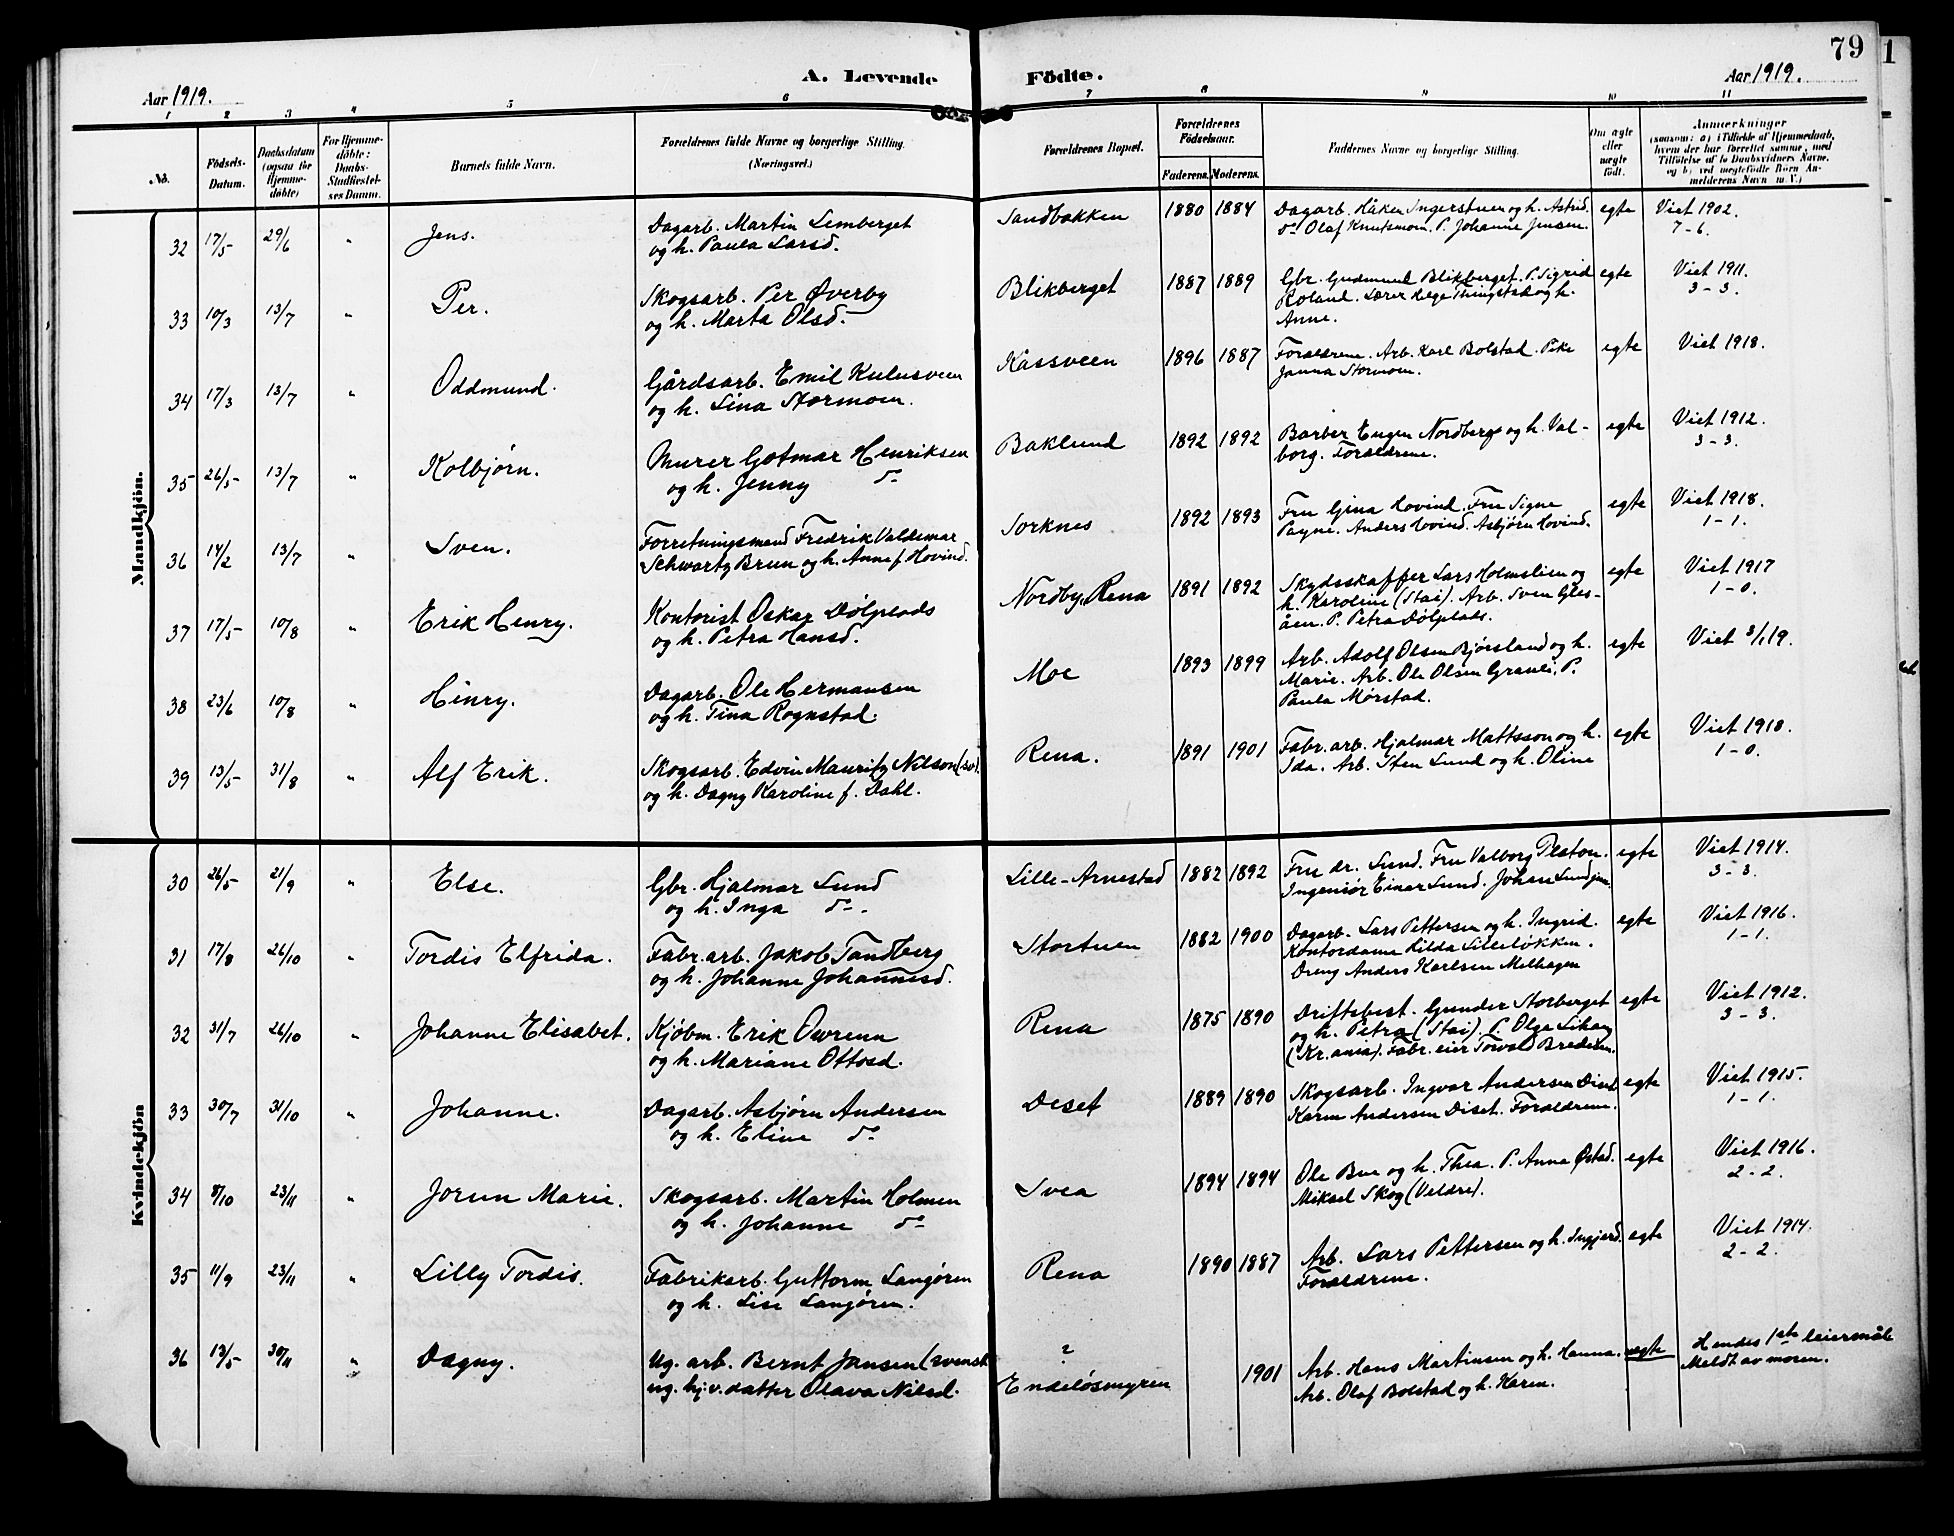 79
A. Levende Födte.
Aar 1919.
Aar 1919.
1 2 3 4 5 6 7 8 9 10 11
No.
Födsels-Datum.
Daabsdatum (ogsaa for Hjemme-döbte)
For Hjemme-döbte: Daabs-Stadfæstel-ses Datum.
Barnets fulde Navn.
Forældrenes fulde Navne og borgerlige Stilling. (Næringsvei.)
Forældrenes Bopæl.
Forældrenes Födselsaar.
Faderens. Moderens.
Faddernes Navne og borgerlige Stilling.
Om ægte eller uægte födt.
Anmærkninger
(saasom: a) i Tilfælde af Hjemmedaab, hvem der har forrettet samme, med Tilföielse af to Daabsvidners Navne, og b) ved uægtefödte Börn An-melderens Navn m. V.)
Mandkjön.
32 17/5 29/6 " Jens. Dagarb. Martin Lemberget Sandbakken 1880 1884 Dagarb. Håken Ingerstuen og h. Astrid. egte Viet 1902.
og h. Paula Larsd. do Olaf Knutsmoen. P. Johanne Jensen. 7-6.
33 10/3 13/7 " Per. Skogsarb. Per Øverby Blikberget 1887 1889 Gbr. Gudmund Blikberget. P. Sigrid egte Viet 1911.
og h. Marta Olsd. Roland. Lærer Helge Thingstad og h. 3-3.
Anne.
34 17/3 13/7 " Oddmund. Gårdsarb. Emil Kulusveen Kåssveen 1896 1887 Forældrene. Arb. Karl Bolstad. Pike egte Viet 1918.
og h. Lina Stormoen. Janna Stormoen.
35 26/5 13/7 " Kolbjørn. Murer Gotmar Henriksen Baklund 1892 1892 Barber Eugen Nordberg og h. Val- egte Viet 1912.
og h. Jenny do borg. Forældrene. 3-3.
36 14/2 13/7 " Sven. Forretningsmand Fredrik Valdemar Sorknes 1892 1893 Fru Gina Hovind. Fru Signe egte Viet 1918.
Schwartz Brun og h. Anne f. Hovind. Payne. Anders Hovind. Asbjørn Hovind. 1-1.
37 17/5 10/8 " Erik Henry. Kontorist Oskar Dølplads Nordby, Rena 1891 1892 Skydsskaffer Lars Holmslien og egte Viet 1917
og h. Petra Hansd. h. Karoline (Stai). Arb. Sven Gles- 1-0.
åen. P. Petra Dølplads.
38 23/6 10/8 " Hinry. Dagarb. Ole Hermansen Moe 1893 1899 Arb. Adolf Olsen Bjørsland og h. egte Viet 3/1 19.
og h. Tina Rognstad. Marie. Arb. Ole Olsen Granli. P.
Paula Mørstad.
39 13/5 31/8 " Alf Erik. Skogsarb. Edvin Mauritz Nilson (sv). Rena. 1891 1901 Fabr. arb. Hjalmar Mattsson og h. egte Viet 1918.
og h. Dagny Karoline f. Dahl. Ida. Arb. Sten Lund og h. Oline 1-0.
Kvindekjön
30 26/5 21/9 " Else. Gbr. Hjalmar Lund Lille-Arnestad 1882 1892 Fru dr. Lund. Fru Valborg egte Viet 1914.
og h. Inga do. Ingeniør Einar Lund. Johan Lund jun. 3-3.
31 17/8 26/10 Tordis Elfrida. Fabr. arb. Jakob Tandberg Stortuen 1882 1900 Dagarb. Lars Pettersen og h. Ingrid. egte Viet 1916.
og h. Johanne Johannesd. Kontordame Hilda Lilleløkken. 1-1.
Dreng Anders Karlsen Melhagen
32 31/7 26/10 " Johanne Elisabet. Kjøbm. Erik Owrenn Rena 1875 1890 Driftsbest. Gunder Storberget egte Viet 1912.
og h. Mariane Ottosd. og h. Petra (Stai). P. Olga Lihaug 3-3.
(Kr.ania). Fabr. eier Torvald Bredesen.
33 30/7 31/10 " Johanne. Dagarb. Asbjørn Andersen Deset 1889 1890 Skogsarb. Ingvar Andersen Diset egte Viet 1915.
og h. Eline do Karen Andersen Diset. Forældrene. 1-1.
34 8/10 23/11 " Jorun Marie. Skogsarb. Martin Holmen Svea 1894 1894 Ole Bue og h. Thea. P. Anna Østad. egte Viet 1916.
og h. Johanne do Mikael Skog (Veldre). 2-2.
35 11/9 23/11 " Lilly Tordis. Fabrikarb. Guttorm Langören Rena 1890 1887 Arb. Lars Pettersen og h. Ingjerd. egte Viet 1914.
og h. Lise Langören. Forældrene. 2-2.
36 13/5 30/11 " Dagny. Ug. arb. Bernt Jansen (svensk ? 1901 Arb. Hans Martinsen og h. Hanna. uegte Hendes 1ste leiermål
ug. hj.v. datter Olava Nilsd. Endeløsmyren Arb. Olaf Bolstad og h. Karen. Meldt av moren.